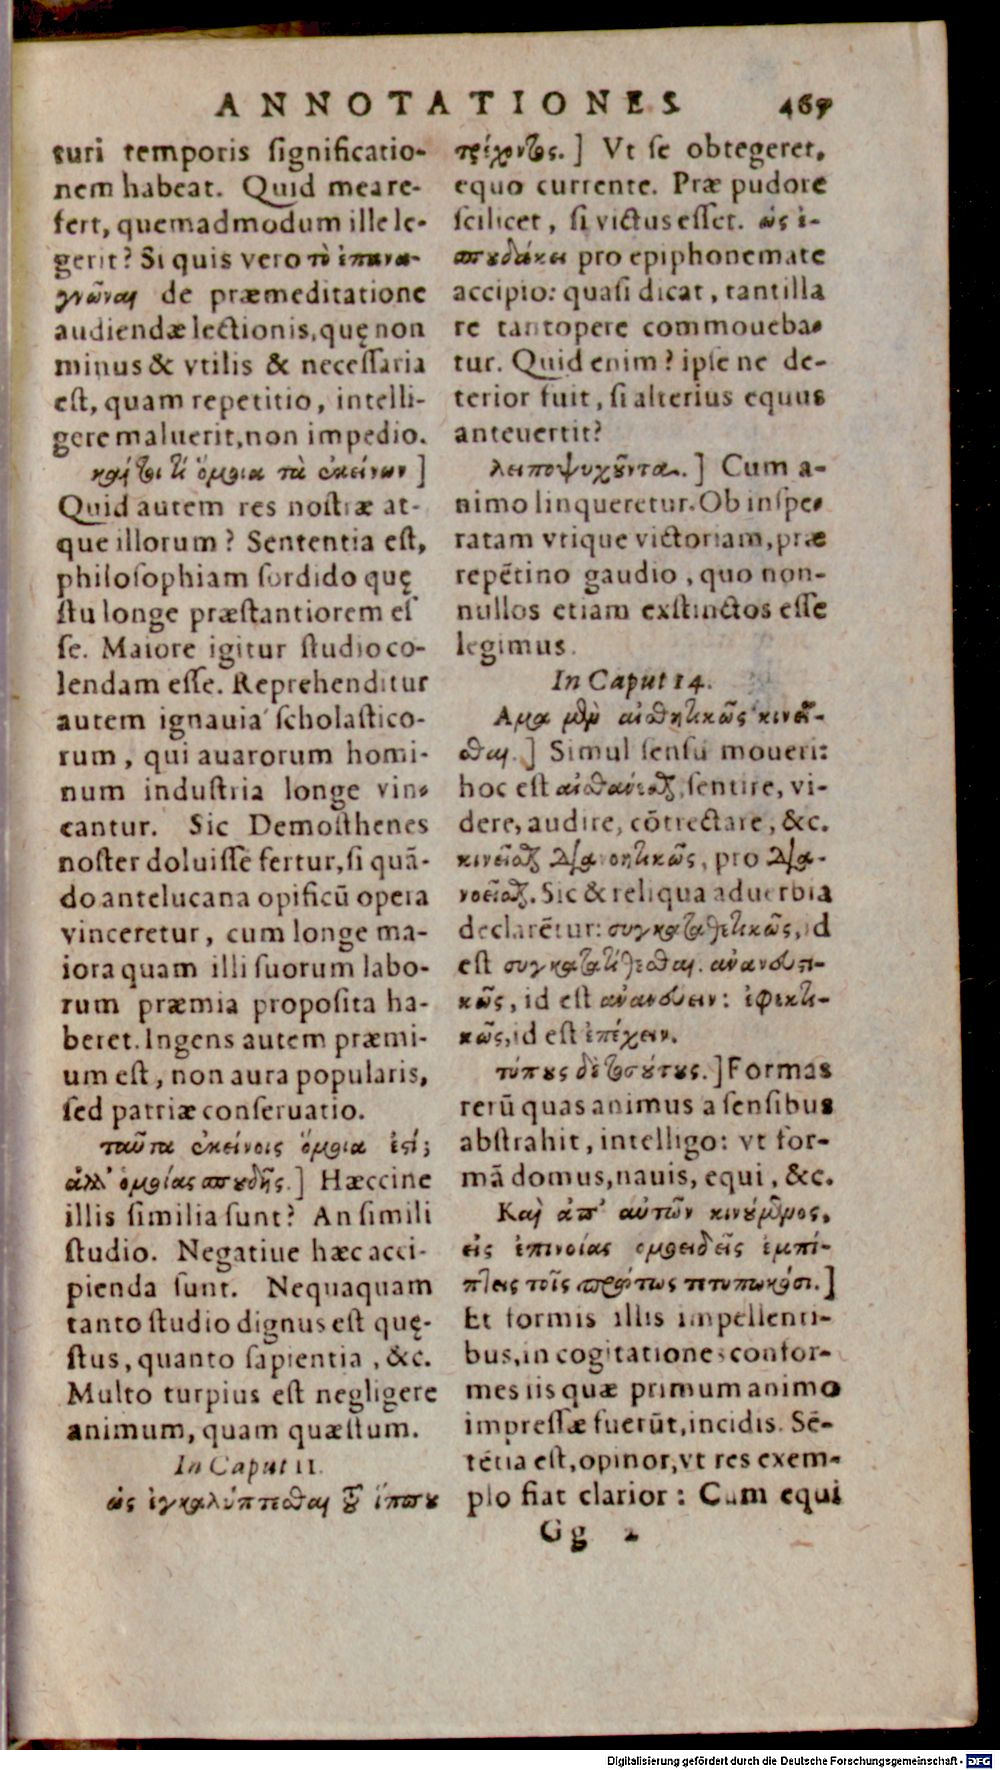 ANNOTATIONES 467
turi temporis significatio-
nem habeat. Quid mea re-
fert, quemadmodum ille le-
gerit? Si quis vero τὸ ἐπανα-
γνῶναι de præmeditatione
audiendæ lectionis, quę non
minus & vtilis & necessaria
est, quam repetitio, intelli-
gere maluerit, non impedio.
καίτοι τί ὅμοια τὰ ἐκείνων]
Quid autem res nostræ at-
que illorum? Sententia est,
philosophiam sordido quę
stu longe præstantiorem es
se. Maiore igitur studio co-
lendam esse. Reprehenditur
autem ignauia scholastico-
rum, qui auarorum homi-
num industria longe vin-
cantur. Sic Demosthenes
noster doluisse fertur, si quã-
do antelucana opificũ opera
vinceretur, cum longe ma-
iora quam illi suorum labo-
rum præmia proposita ha-
beret. Ingens autem præmi-
um est, non aura popularis,
sed patriæ conseruatio.
ταῦτα ἐκείνοις ὅμοια ἐστί;
ἀλλ' ὁμοίας σπουδῆς.] Hæccine
illis similia sunt? An simili
studio. Negatiue hæc acci-
pienda sunt. Nequaquam
tanto studio dignus est quę-
stus, quanto sapientia, &c.
Multo turpius est negligere
animum, quam quæstum.
In Caput 11.
ὡς ἐγκαλύπτεσθαι τοῦ ἵππου
τρέχοντος.] Vt se obtegeret,
equo currente. Præ pudore
scilicet, si victus esset. ὡς ἐ-
σπουδάκει pro epiphonemate
accipio: quasi dicat, tantilla
re tantopere commoueba-
tur. Quid enim? ipse ne de-
terior fuit, si alterius equus
anteuertit?
λειποψυχοῦντα.] Cum a-
nimo linqueretur. Ob inspe-
ratam vtique victoriam, præ
repẽtino gaudio, quo non-
nullos etiam exstinctos esse
legimus.
In Caput 14.
Αμα μὲν αἰσθητικῶς κινεῖ-
σθαι.] Simul sensu moueri:
hoc est αἰσθάνεσθαι, sentire, vi-
dere, audire, cõtrectare, &c.
κινεῖσθαι διανοητικῶς, pro δια-
νοεῖσθαι. Sic & reliqua aduerbia
declarẽtur: συγκαταθετικῶς, id
est συγκατατίθεσθαι. ἀνανευστι-
κῶς, id est ἀνανεύειν: ἐφεκτι-
κῶς, id est ἐπέχειν.
τύπους δὲ τοσούτους.] Formas
rerũ quas animus a sensibus
abstrahit, intelligo: vt for-
mã domus, nauis, equi, &c.
Καὶ ἀπ' αὐτῶν κινούμενος,
εἰς ἐπινοίας ὁμοειδεῖς ἐμπί-
πτεις τοῖς πρώτως τετυπωκόσι.]
Et formis illis impellenti-
bus, in cogitationes confor-
mes iis quæ primum animo
impressæ fuerũt, incidis. Sẽ-
tẽtia est, opinor, vt res exem-
plo fiat clarior: Cum equi
Gg 2
Digitalisierung gefördert durch die Deutsche Forschungsgemeinschaft - DFG